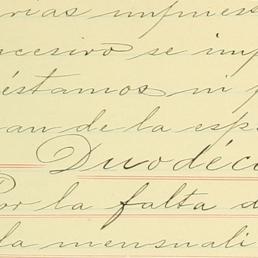 rias impues
ncesivo se imp
éstamos ni p
an de la esp
Duodéci
Por la falta d
la mensuali